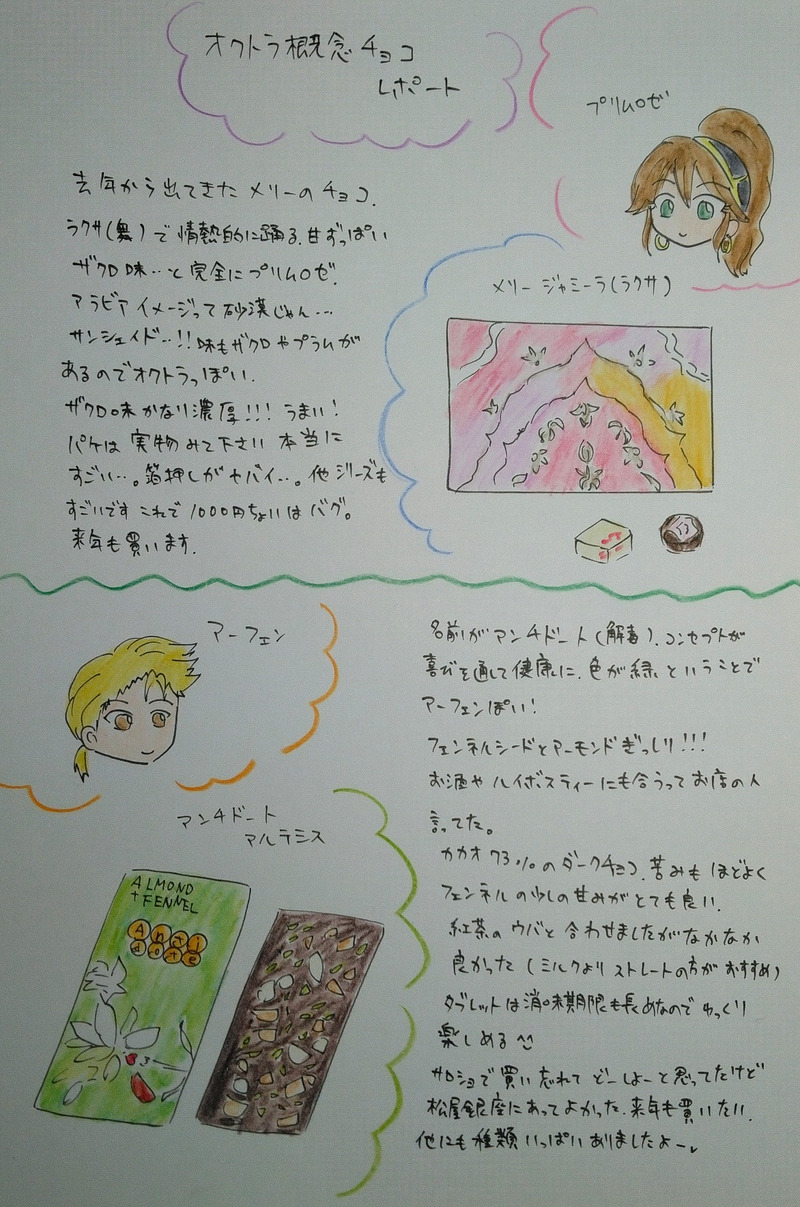 オクトラ概念チョコ
レポート
プリムロゼ
去年から出てきた メリーの チョコ.
ラクサ(舞)で 情熱的に踊る. 甘ずっぱい
ザクロ味‥と 完全に プリムロゼ.
アラビア イメージって 砂漠じゃん…
サンシェイド‥!! 味も ザクロ や プラムが
あるので オクトラっぽい.
ザクロ味 かなり 濃厚!!! うまい!
パケは 実物 みて 下さい 本当に
すごい…。箔押しが ヤバイ…。他 シリーズも
すごいです これで 1000円ちょいは バグ。
来年も 買います.
メリー ジャミーラ(ラクサ)
アーフェン
アンチドート
アルテミス
ALMOND
+ FENNEL
Anti
dote
名前が アンチドート (解毒). コンセプトが
喜びを通して 健康に. 色が 緑. と いうことで
アーフェンぽい!
フェンネルシードと アーモンド ぎっしり!!!
お酒や ルイボスティーにも 合うって お店の人
言ってた。
カカオ 73%の ダークチョコ. 苦みも ほどよく
フェンネル の少しの 甘みが とても 良い.
紅茶の ウバと 合わせましたが なかなか
良かった (ミルクより ストレートの方が おすすめ)
タブレットは 消味期限も 長めなので ゆっくり
楽しめる ^^
サロショで 買い忘れて どーしよーと 思ってたけど
松屋銀座に あって よかった. 来年も 買いたい.
他にも 種類 いっぱい ありましたよー